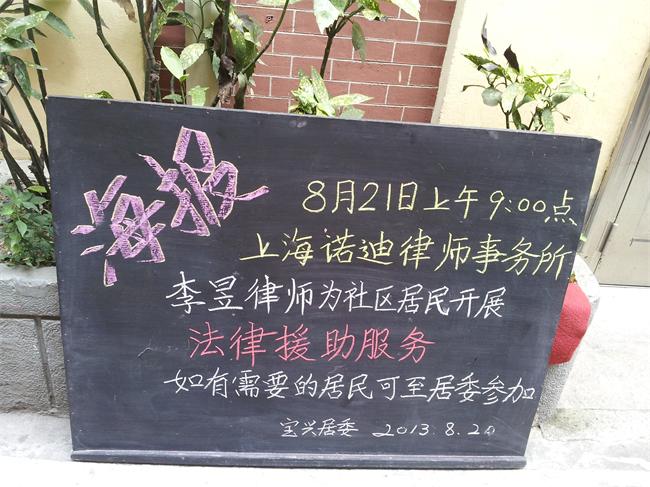 海报
8月21日上午9:00点
上海诺迪律师事务所
李昱律师为社区居民开展
法律援助服务
如有需要的居民可至居委参加
宝兴居委 2013.8.20